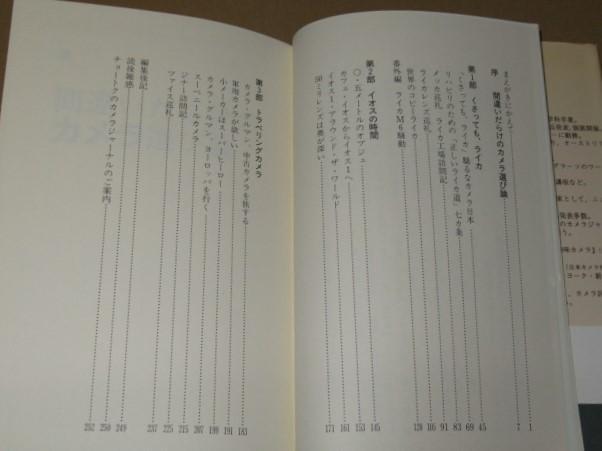 まえがきにかえて 1
序 間違いだらけのカメラ選び論 7
第1部 くさっても、ライカ
「くさっても、ライカ」騒るなカメラ日本 45
リハビリのための「正しいライカ道」七カ条 69
メッカ巡礼 ライカ工場訪問記 83
ライカレンズ巡礼 91
世界のコピーライカ 116
番外編 ライカM6騒動 128
第2部 イオスの時間
〇・五メートルのオブジェ 145
カフェ・イオスからイオス1へ 153
イオス1・アラウンド・ザ・ワールド 161
50ミリレンズは奥が深い 171
第3部 トラベリングカメラ
カメラ・グルマン、中古カメラを旅する 183
軍用カメラが欲しい 191
小メーカーはスーパーヒーロー 199
カメラ・グルマン、ヨーロッパを行く 207
スーベニールカメラ 215
ジナー訪問記 225
ツァイス巡礼 237
編集後記 249
読後雑感 250
チョートクのカメラジャーナルのご案内 252